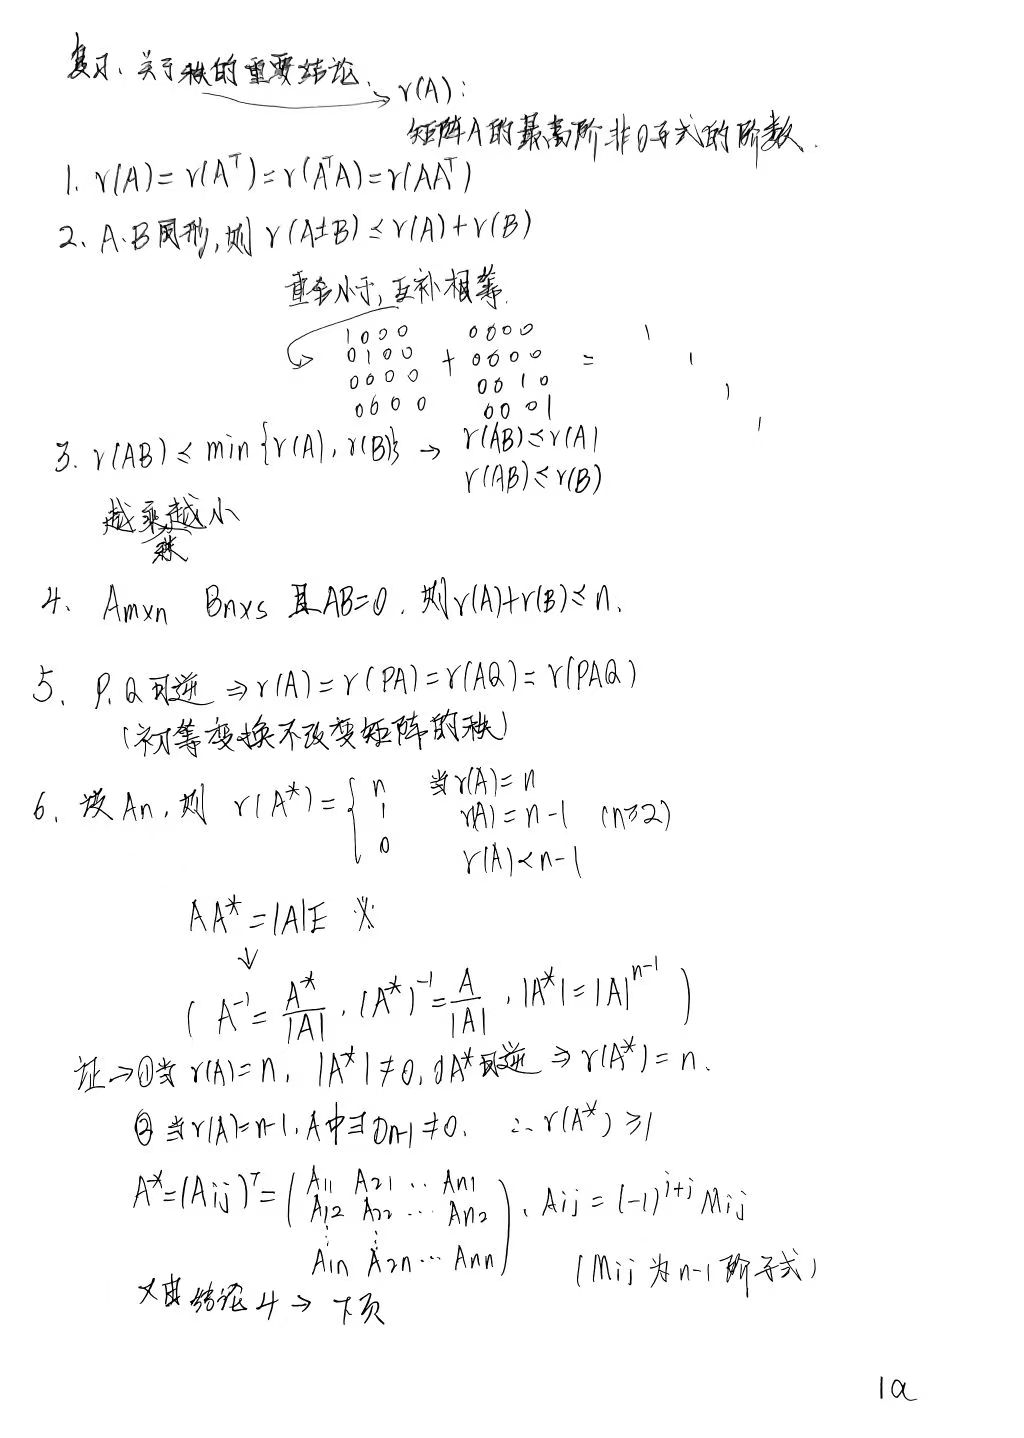 复习、关于秩的重要结论.
r(A):
矩阵A的最高阶非0子式的阶数.
1. r(A)=r(Aᵀ)=r(AᵀA)=r(AAᵀ)
2、A.B同形,则 r(A±B)≤r(A)+r(B)
重合小于,互补相等.
1000 0000 1
0100 + 0000 = 1
0000 0010 1
0000 0001 1
3. r(AB)≤min{r(A),r(B)} → r(AB)≤r(A)
r(AB)≤r(B)
越乘越小
秩
4、Am×n Bn×s 且AB=0.则r(A)+r(B)≤n.
5、P.Q可逆 ⇒ r(A)=r(PA)=r(AQ)=r(PAQ)
(初等变换不改变矩阵的秩)
6. 设An,则 r(A*)={ n 当r(A)=n
1 r(A)=n-1 (n≥2)
0 r(A)<n-1
AA*=|A|E ※
↓
( A⁻¹=A*/|A| . (A*)⁻¹=A/|A| . |A*|=|A|ⁿ⁻¹ )
证→①当r(A)=n, |A*|≠0, A*可逆 ⇒ r(A*)=n.
②当r(A)=n-1,A中∃Dn-1≠0. ∴r(A*)≥1
A*=(Aij)ᵀ=(A11 A21 ‥ An1
A12 A22 … An2
⋮ ⋮
A1n A2n … Ann) . Aij=(-1)ⁱ⁺ʲMij
(Mij为n-1阶子式)
又由结论4 → 下页
1a